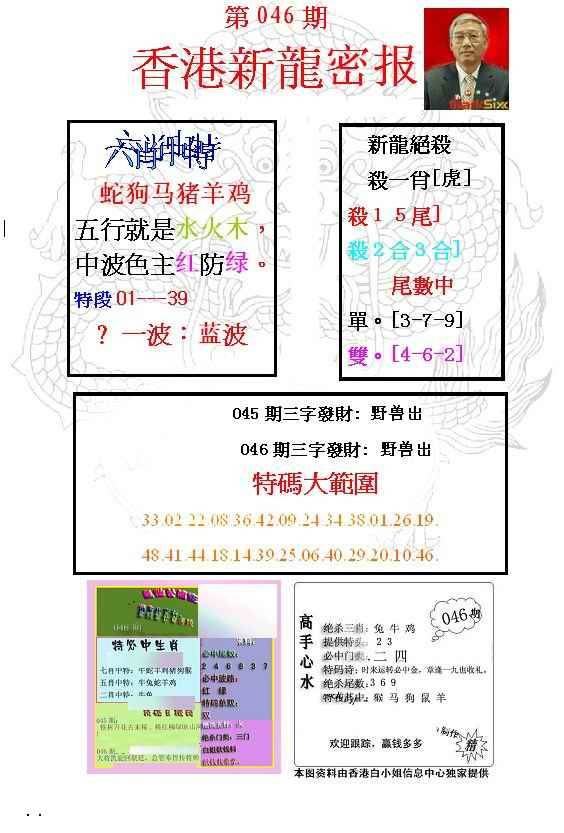 第 046 期
香港新龍密报
MarkSix
六肖中特
蛇狗马猪羊鸡
五行就是水火木，
中波色主红防绿。
特段 01---39
？一波：蓝波
新龍絕殺
殺一肖[虎]
殺１５尾]
殺２合３合]
尾數中
單。[3-7-9]
雙。[4-6-2]
045 期三字發財: 野兽出
046 期三字發財: 野兽出
特碼大範圍
33.02.22.08.36.42.09.24.34.38.01.26.19.
48.41.44.18.14.39.25.06.40.29.20.10.46.
特必中生肖
七肖中特: 牛蛇羊鸡猪狗猴
五肖中特: 牛兔蛇羊鸡
二肖中特: 牛兔
045 期:
046 期:
必中尾数:
2 4 6 8 3 7
必中波路:
红 绿
特码单双:
双
绝杀门类: 三门
高手心水
046期
绝杀三肖: 兔 牛 鸡
提供特头: 2 3
必中门类: 二 四
特码诗: 时来运转必中金，章逢一九也收礼。
绝杀尾数: 3 6 9
猴 马 狗 鼠 羊
欢迎跟踪，赢钱多多
制作
精
本图资料由香港白小姐信息中心独家提供